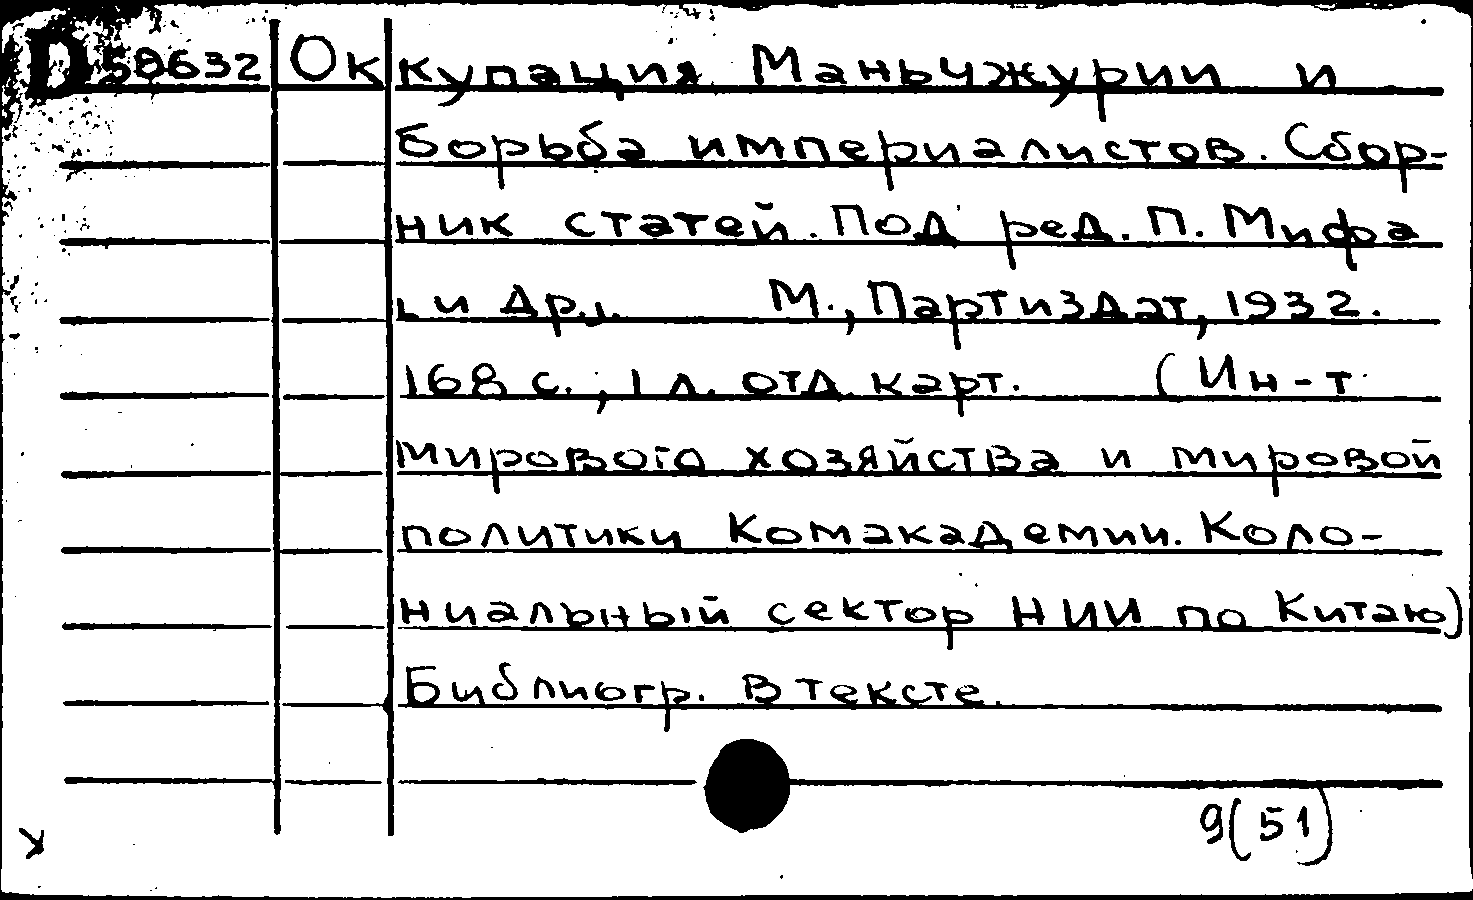 D 50632 Оккупация Маньчжурии и
борьба империалистов. Сбор-
ник статей. Под ред. П. Мифа
[и др.]. М., Партиздат, 1932.
168 с., 1 л. отд. карт. (Ин-т
мирового хозяйства и мировой
политики Комакадемии. Коло-
ниальный сектор НИИ по Китаю)
Библиогр. в тексте.
9(51)